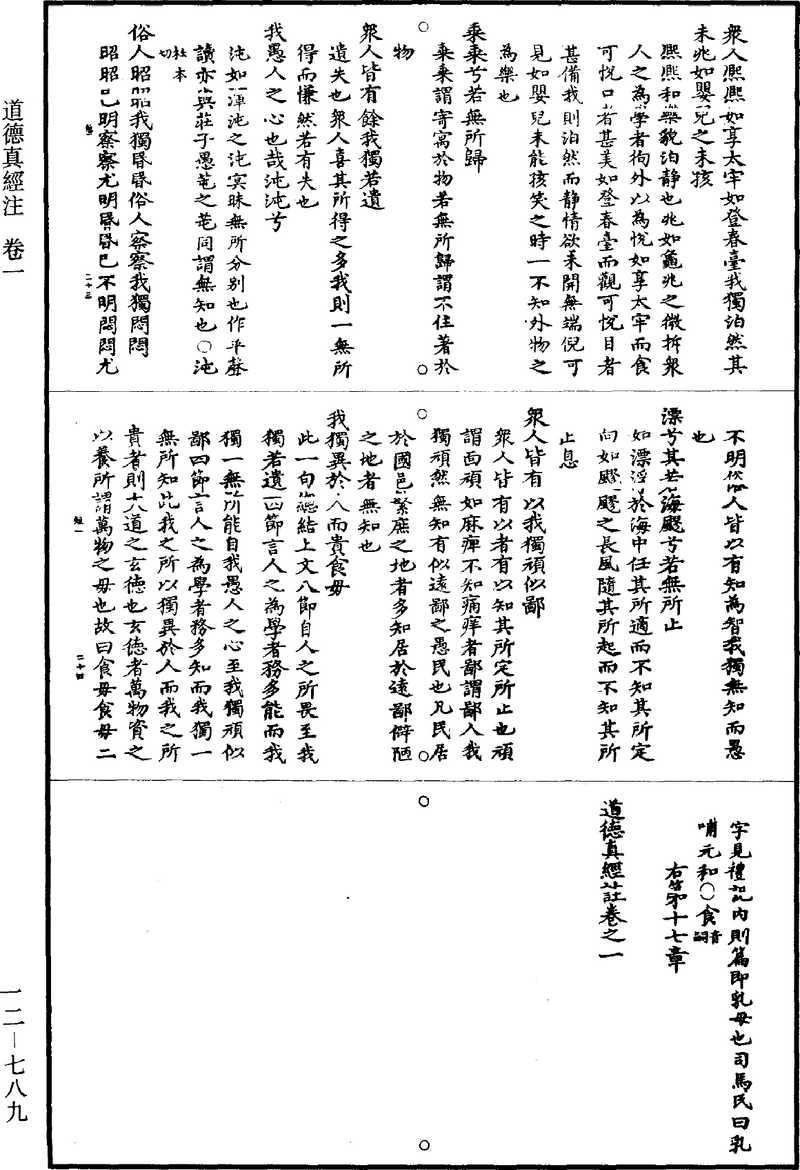 衆人熙熙如享太牢如登春臺我獨泊然其
未兆如嬰兒之未孩
熙熙和樂貌泊静也兆如龜兆之微拆衆
人之為學者徇外以為悅如享太牢而食
可悅口者甚美如登春臺而觀可悅目者
甚備我則泊然而静情欲未開無端倪可
見如嬰兒未能孩笑之時一不知外物之
為樂也
乘乘兮若無所歸
乘乘謂寄寓於物若無所歸謂不住著於
物
衆人皆有餘我獨若遺
遺失也衆人喜其所得之多我則一無所
得而慊然若有失也
我愚人之心也哉沌沌兮
沌如渾沌之沌冥昧無所分别也作平聲
讀亦與莊子愚芚之芚同謂無知也○沌
杜本切
俗人昭昭我獨昏昏俗人察察我獨悶悶
昭昭已明察察尤明昏昏已不明悶悶尤
二十三
不明俗人皆以有知為智我獨無知而愚
也
漂兮其若海飂兮若無所止
如漂浮於海中任其所適而不知其所定
向如飂飂之長風隨其所起而不知其所
止息
衆人皆有以我獨頑似鄙
衆人皆有以者有以知其所定所止也頑
謂面頑如麻痺不知痛痒者鄙謂鄙人我
獨頑然無知有似遠鄙之愚民也凡民居
於國邑繁庶之地者多知居於遠鄙僻陋
之地者無知也
我獨異於人而貴食母
此一句總結上文八節自人之所畏至我
獨若遺四節言人之為學者務多能而我
獨一無所能自我愚人之心至我獨頑似
鄙四節言人之為學者務多知而我獨一
無所知此我之所以獨異於人而我之所
貴者則大道之玄德也玄德者萬物資之
以養所謂萬物之母也故曰食母食母二
二十四
字見禮記内則篇即乳母也司馬氏曰乳
哺元和○食音嗣
右第十七章
道德真經註卷之一
道德真經注 卷一
一二—七八九